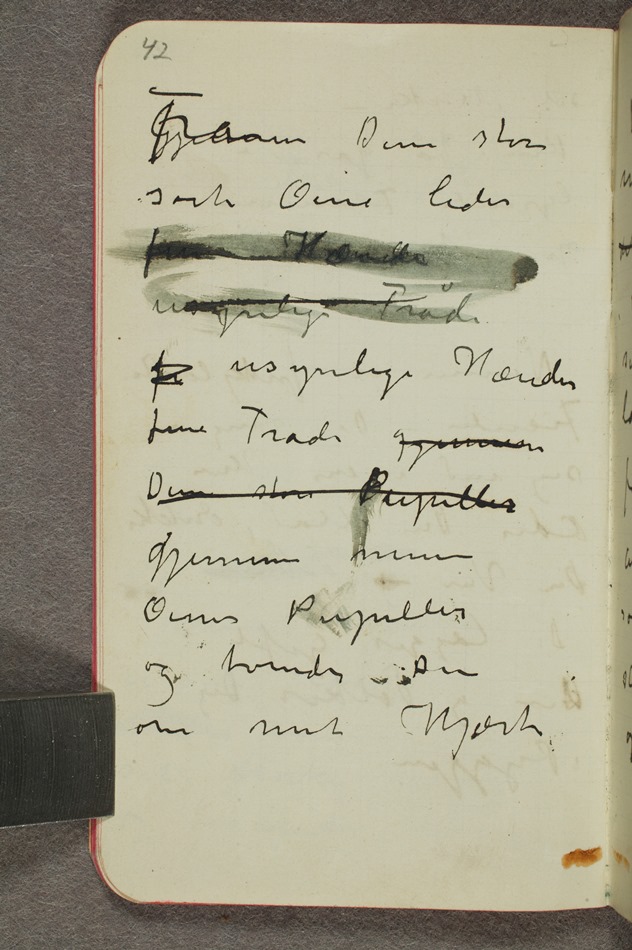 42
Gjennem Dine store
sorte Øine leder
fine Hænder
usynlige Tråde
fi usynlige Hænder
fine Trade gjennem
Dine store Pupiller
gjennem mine
Øines Pupiller
og binder dem
om mit Hjerte